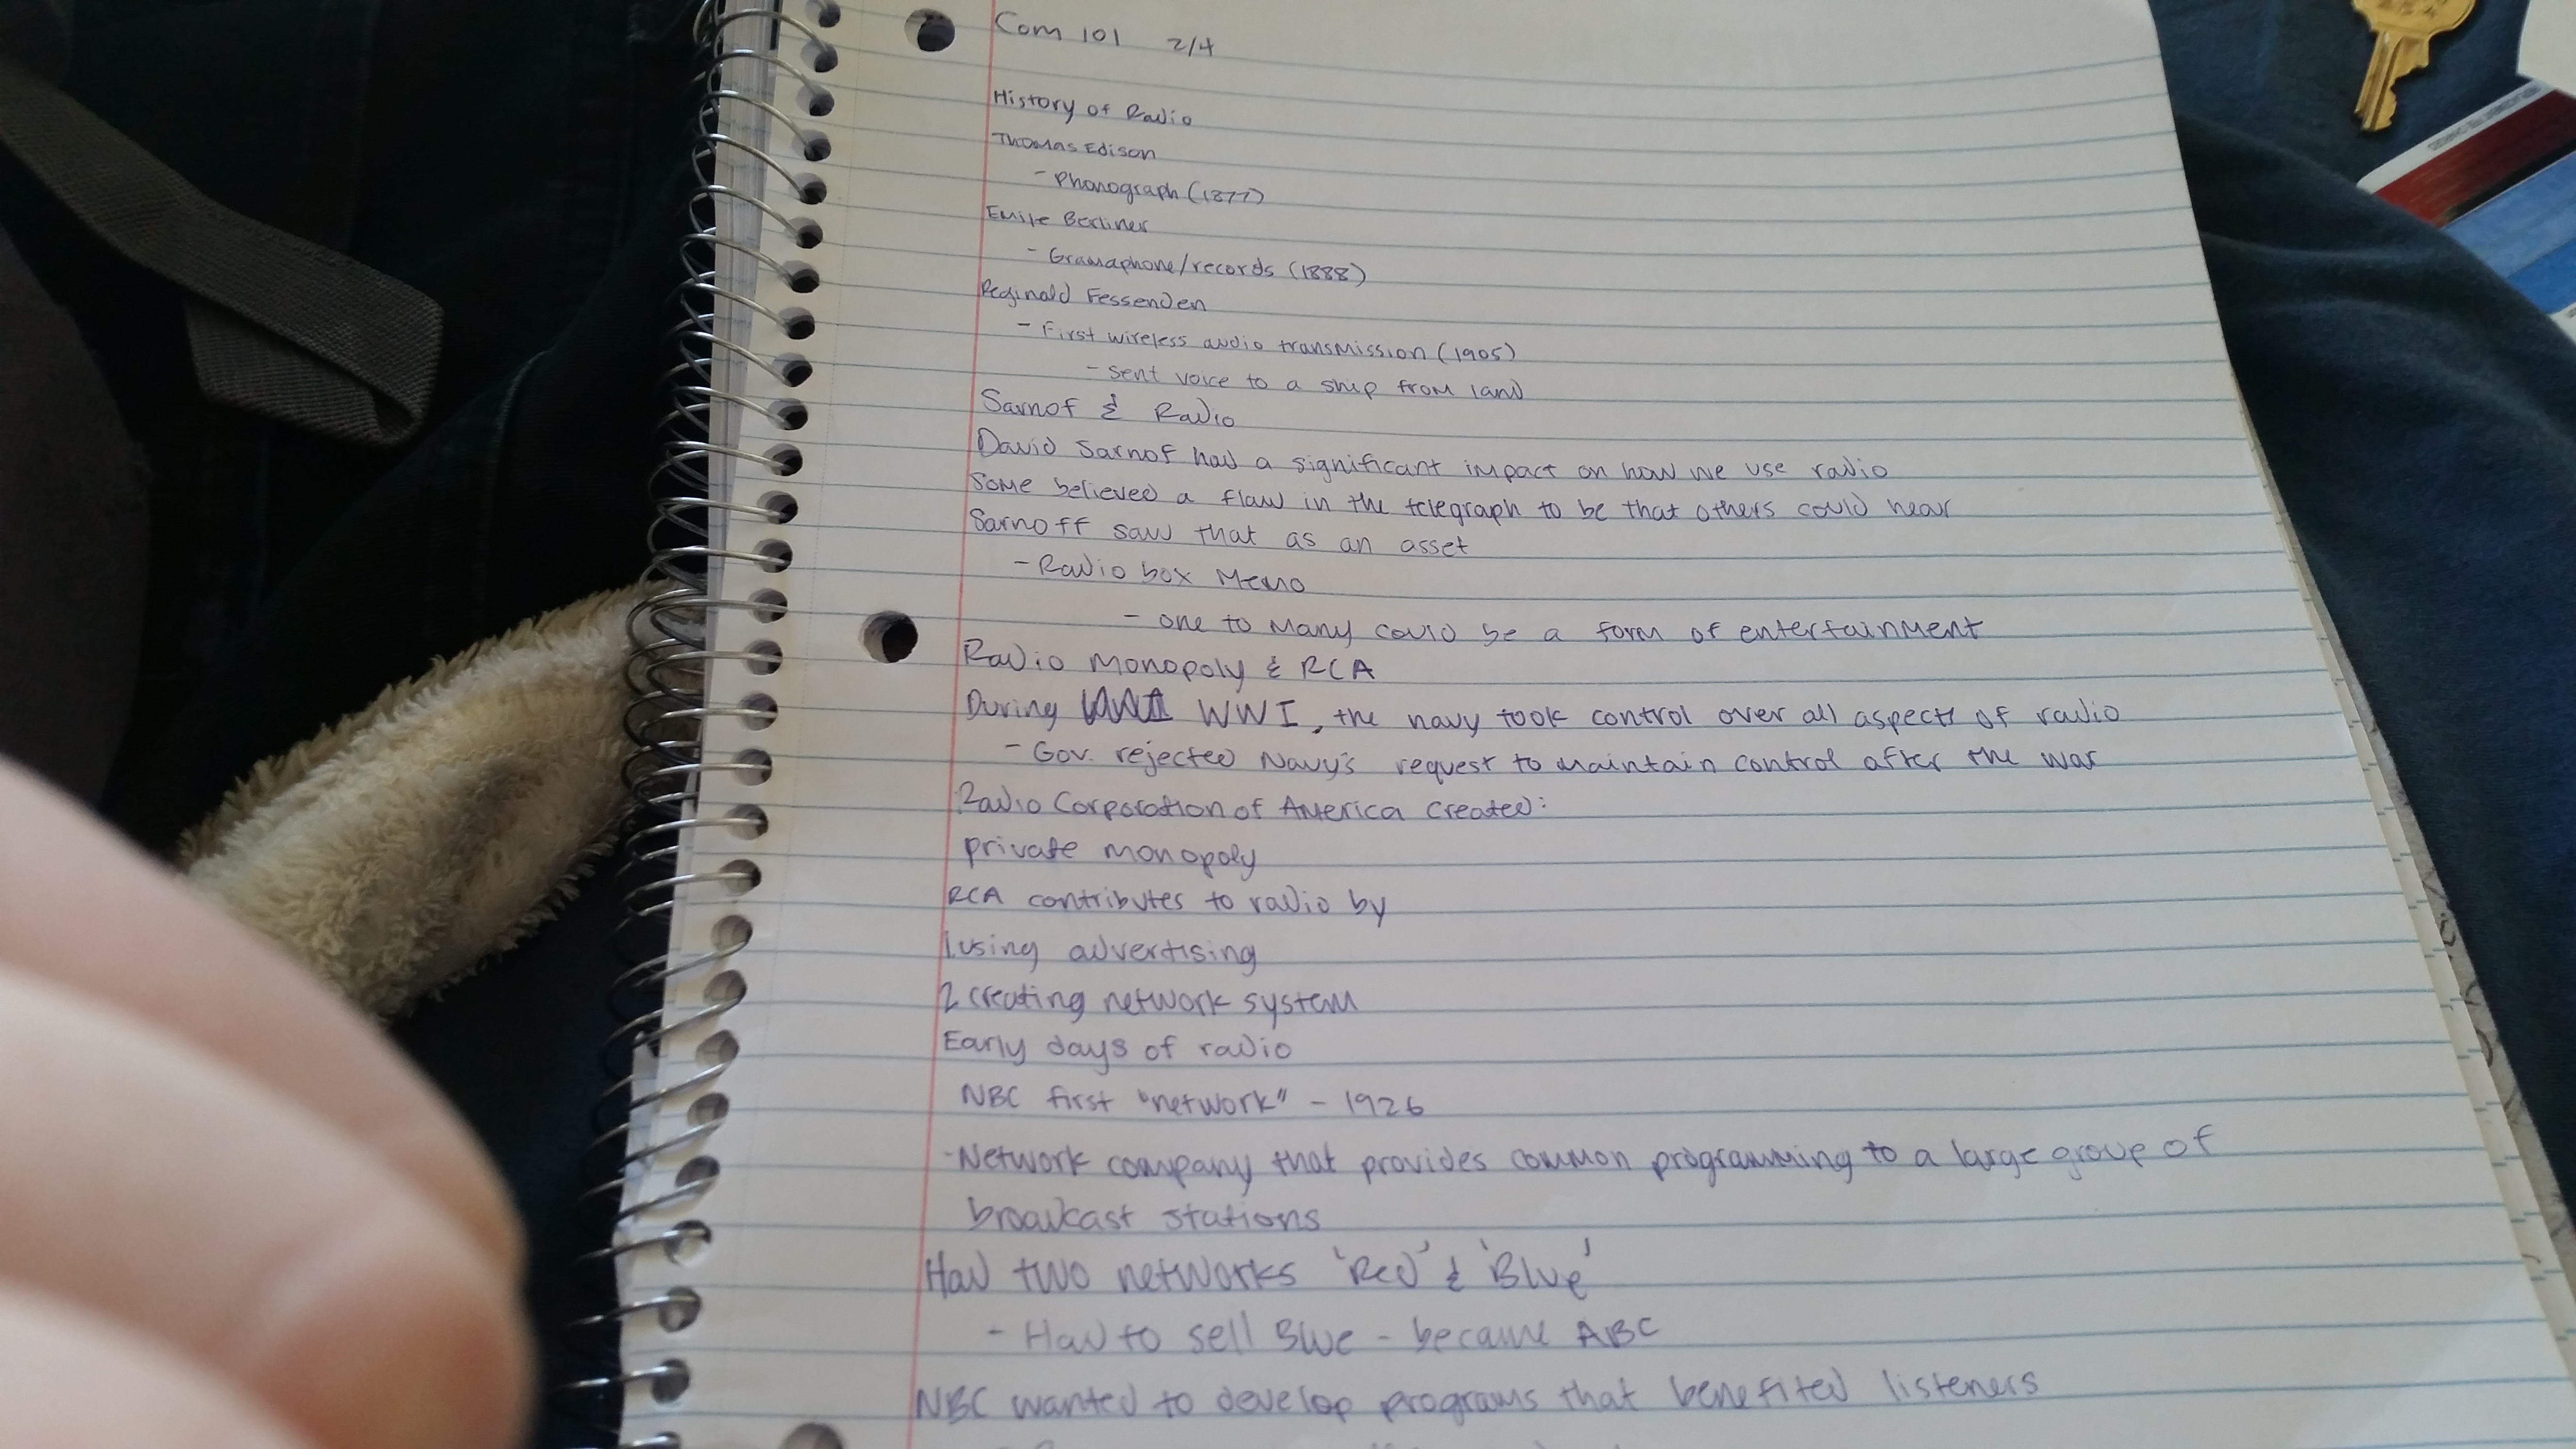 Com 101 2/4
History of Radio
Thomas Edison
- Phonograph (1877)
Emile Berliner
- Gramaphone/records (1888)
Reginald Fessenden
- First wireless audio transmission (1905)
- sent voice to a ship from land
Sarnof & Radio
David Sarnof had a significant impact on how we use radio
Some believed a flaw in the telegraph to be that others could hear
Sarnoff saw that as an asset
- Radio box Memo
- one to Many could be a form of entertainment
Radio Monopoly & RCA
During WWI, the navy took control over all aspects of radio
- Gov. rejected Navy's request to maintain control after the war
Radio Corporation of America created:
private monopoly
RCA contributes to radio by
1 using advertising
2 creating network system
Early days of radio
NBC first "network" - 1926
- Network company that provides common programming to a large group of
broadcast stations
Had two networks 'Red' & 'Blue'
- Had to sell Blue - became ABC
NBC wanted to develop programs that benefited listeners